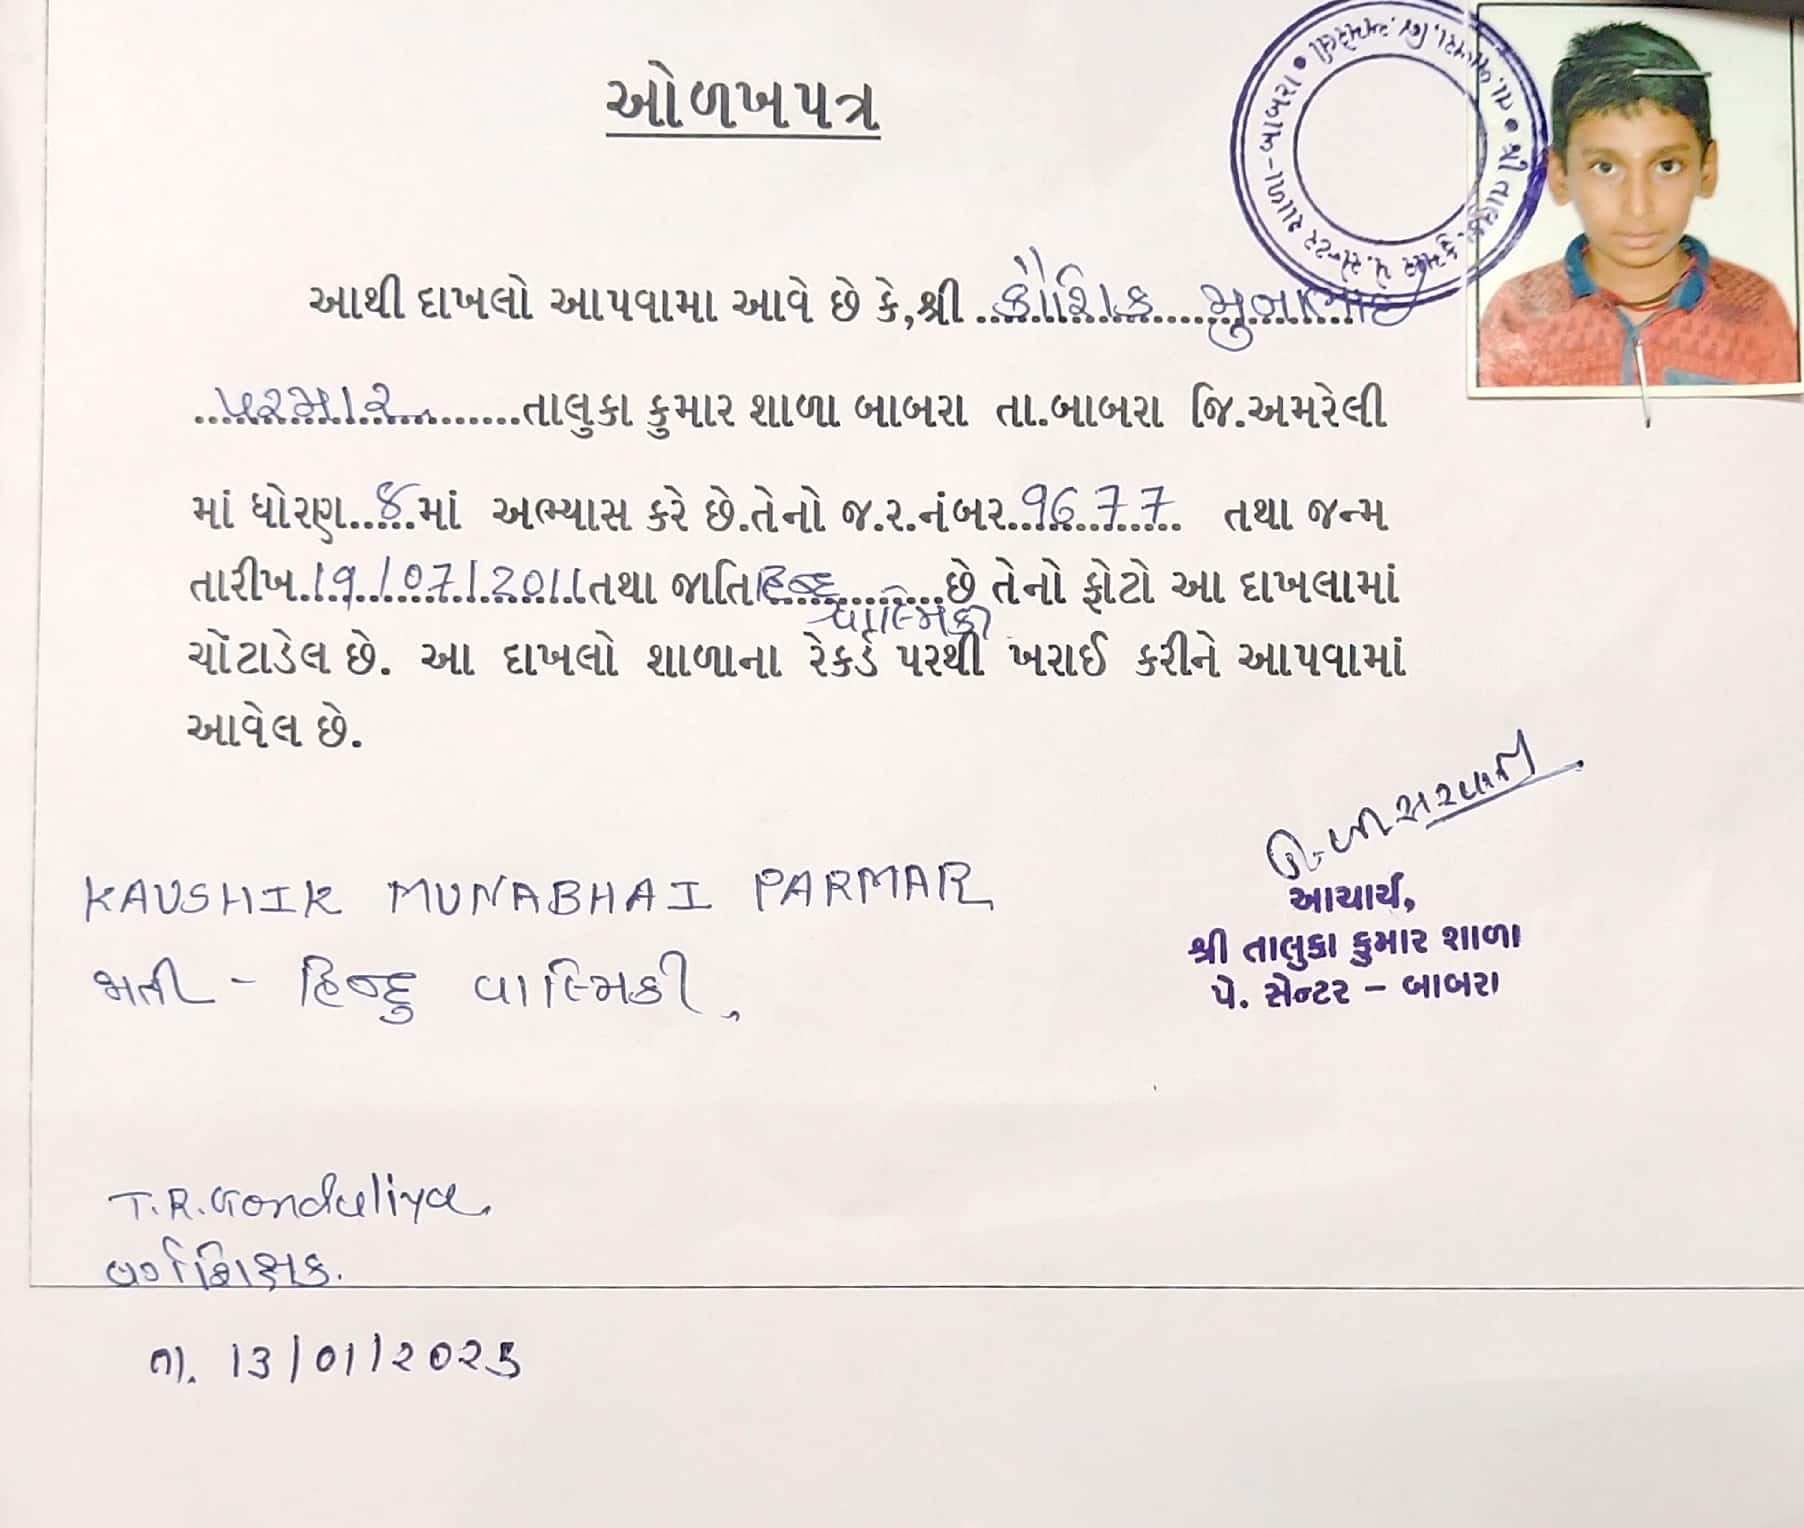 ઓળખપત્ર
શ્રી તાલુકા કુમાર પે.સેન્ટર શાળા-બાબરા • તા.બાબરા. જિ.અમરેલી •
આથી દાખલો આપવામા આવે છે કે,શ્રી કૌશિક મુનાભાઈ
પરમાર તાલુકા કુમાર શાળા બાબરા તા.બાબરા જિ.અમરેલી
માં ધોરણ માં અભ્યાસ કરે છે.તેનો જ.ર.નંબર 9677 તથા જન્મ
તારીખ 19/07/2011 તથા જાતિ હિન્દુ છે તેનો ફોટો આ દાખલામાં
વાલ્મિકી
ચોંટાડેલ છે. આ દાખલો શાળાના રેકર્ડ પરથી ખરાઈ કરીને આપવામાં
આવેલ છે.
આચાર્ય,
શ્રી તાલુકા કુમાર શાળા
પે. સેન્ટર - બાબરા
KAUSHIK MUNABHAI PARMAR
જાતી - હિન્દુ વાલ્મિકી,
T.R.Gonduliya
વર્ગ શિક્ષક.
તા. 13/01/2025